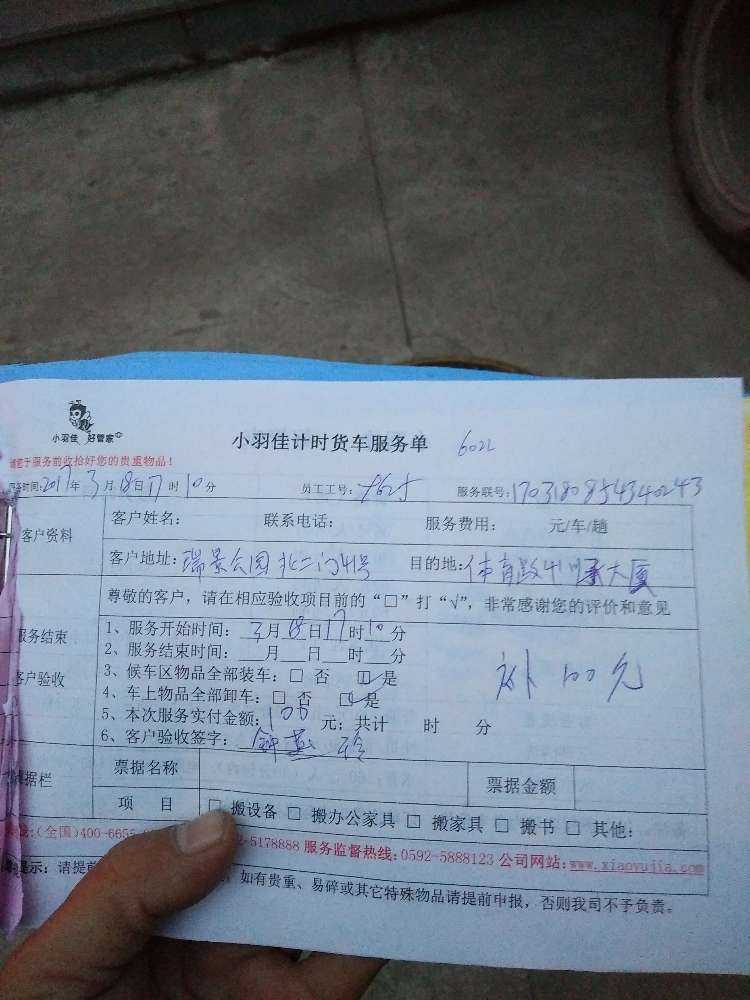 小羽佳 好管家
小羽佳计时货车服务单 6022
请您于服务前收拾好您的贵重物品！
服务时间:2017年3月18日17时10分 员工工号: 服务联号:1703180854340243
客户资料
客户姓名: 联系电话: 服务费用: 元/车/趟
客户地址:瑞景公园北二门41号 目的地:体育路41号大厦
尊敬的客户，请在相应验收项目前的“□”打“√”，非常感谢您的评价和意见
服务结束
客户验收
1、服务开始时间: 3月18日17时10分
2、服务结束时间: 月 日 时 分
3、候车区物品全部装车: □ 否 □ 是
4、车上物品全部卸车: □ 否 □ 是
补100元
5、本次服务实付金额:100元; 共计 时 分
6、客户验收签字: 钟燕玲
票据栏
票据名称 票据金额
项 目 □ 搬设备 □ 搬办公家具 □ 搬家具 □ 搬书 □ 其他:
(全国)400-6655- -5178888 服务监督热线:0592-5888123 公司网站:www.xiaoyujia.com
提示: 请提前 如有贵重、易碎或其它特殊物品请提前申报，否则我司不予负责。